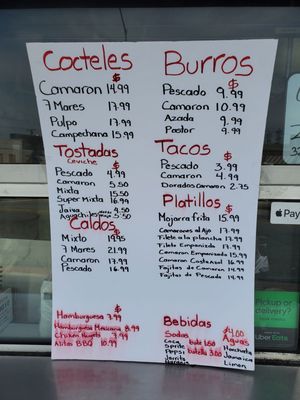 Cocteles
$
Camaron 14.99
7 Mares 17.99
Pulpo 17.99
Campechana 15.99
Tostadas
Ceviche $
Pescado 4.99
Camaron 5.50
Mixta 5.50
Super Mixta 16.99
Jaiva 9.50
Aguachiles 5.50
Caldos $
Mixto 19.95
7 Mares 21.99
Camaron 17.99
Pescado 16.99
$
Hamburguesa 7.99
Hamburguesa 8.99
7.99
Alitas BBQ 10.99
Burros
$
Pescado 9.99
Camaron 10.99
Azada 9.99
Pastor 9.99
Tacos
$
Pescado 3.99
Camaron 4.99
Dorados Camaron 2.75
Platillos $
Mojarra frita 15.99
Camarones al Ajo 17.99
Filete a la plancha 17.99
Filete Empanizado 17.99
Camaron Empanizado 15.99
Camaron Costa azul 16.99
Fajitas de Camaron 14.99
Fajitas de Pescado 14.99
Bebidas
Sodas
Coca
Sprite bote 1.50
Pepsi botella 3.00
Jarrito
$4.00
Aguas
Horchata
Jamaica
Limon
Pay
Pickup or
delivery?
Uber Eats